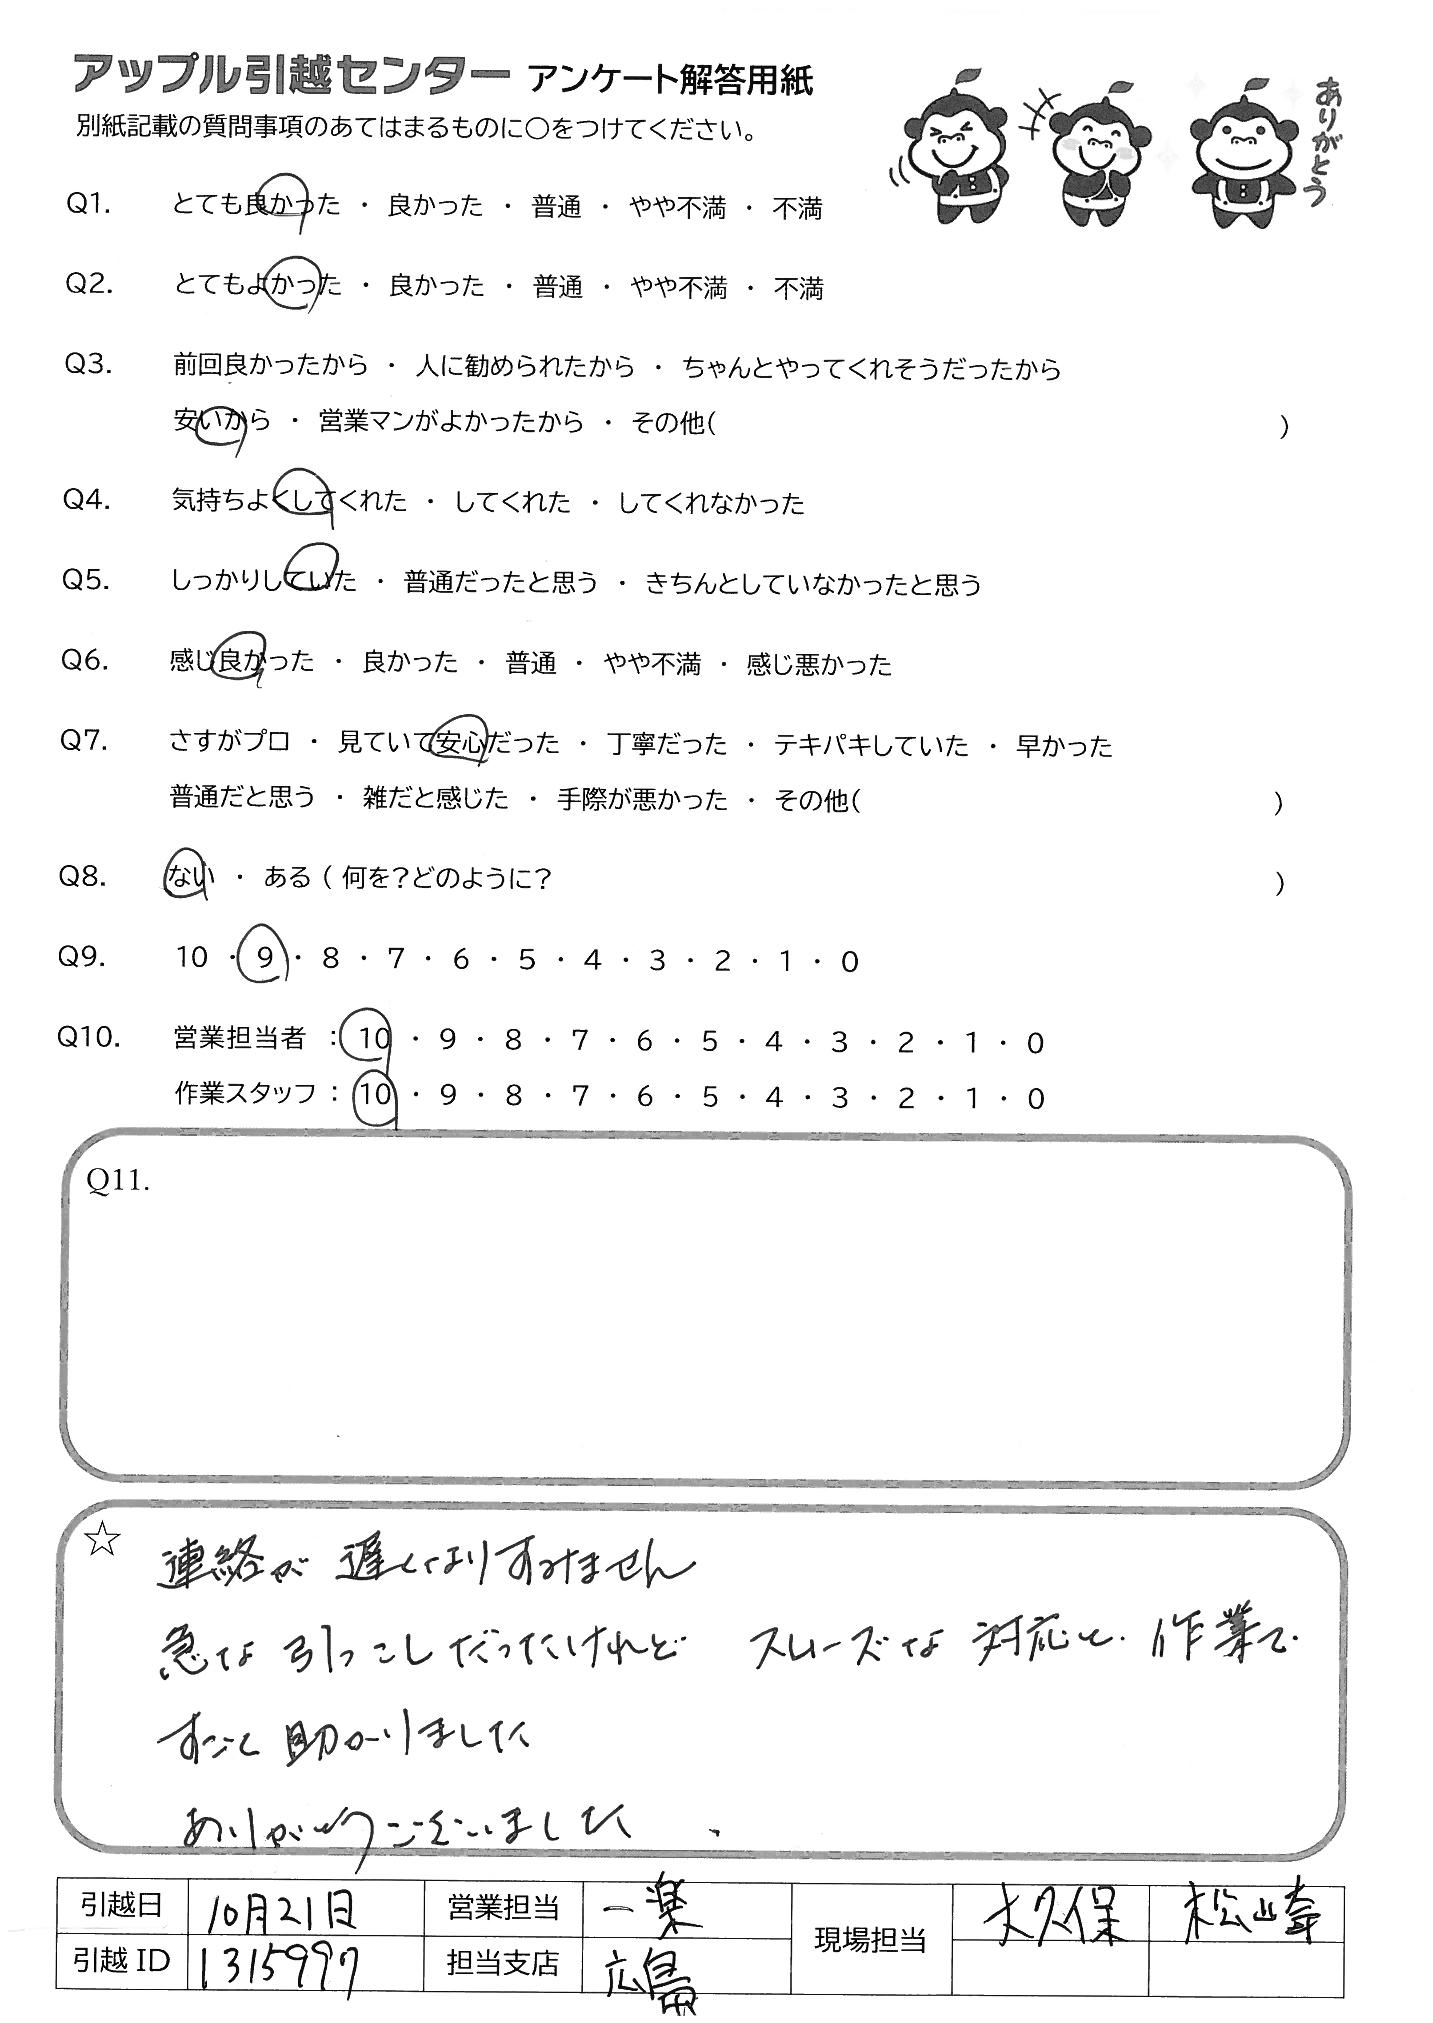 アップル引越センター アンケート解答用紙
別紙記載の質問事項のあてはまるものに〇をつけてください。
ありがとう
Q1. とても良かった ・ 良かった ・ 普通 ・ やや不満 ・ 不満
Q2. とてもよかった ・ 良かった ・ 普通 ・ やや不満 ・ 不満
Q3. 前回良かったから ・ 人に勧められたから ・ ちゃんとやってくれそうだったから
安いから ・ 営業マンがよかったから ・ その他( )
Q4. 気持ちよくしてくれた ・ してくれた ・ してくれなかった
Q5. しっかりしていた ・ 普通だったと思う ・ きちんとしていなかったと思う
Q6. 感じ良かった ・ 良かった ・ 普通 ・ やや不満 ・ 感じ悪かった
Q7. さすがプロ ・ 見ていて安心だった ・ 丁寧だった ・ テキパキしていた ・ 早かった
普通だと思う ・ 雑だと感じた ・ 手際が悪かった ・ その他( )
Q8. ない ・ ある ( 何を?どのように? )
Q9. 10 ・ 9 ・ 8 ・ 7 ・ 6 ・ 5 ・ 4 ・ 3 ・ 2 ・ 1 ・ 0
Q10. 営業担当者 : 10 ・ 9 ・ 8 ・ 7 ・ 6 ・ 5 ・ 4 ・ 3 ・ 2 ・ 1 ・ 0
作業スタッフ : 10 ・ 9 ・ 8 ・ 7 ・ 6 ・ 5 ・ 4 ・ 3 ・ 2 ・ 1 ・ 0
Q11.
☆ 連絡が 遅くなりすみません
急な 引っこしだったけれど スムーズな 対応と 作業で
すごく 助かりました
ありがとうございました
引越日 10月21日 営業担当 一楽 現場担当 大久保 松山奈
引越ID 1315997 担当支店 広島